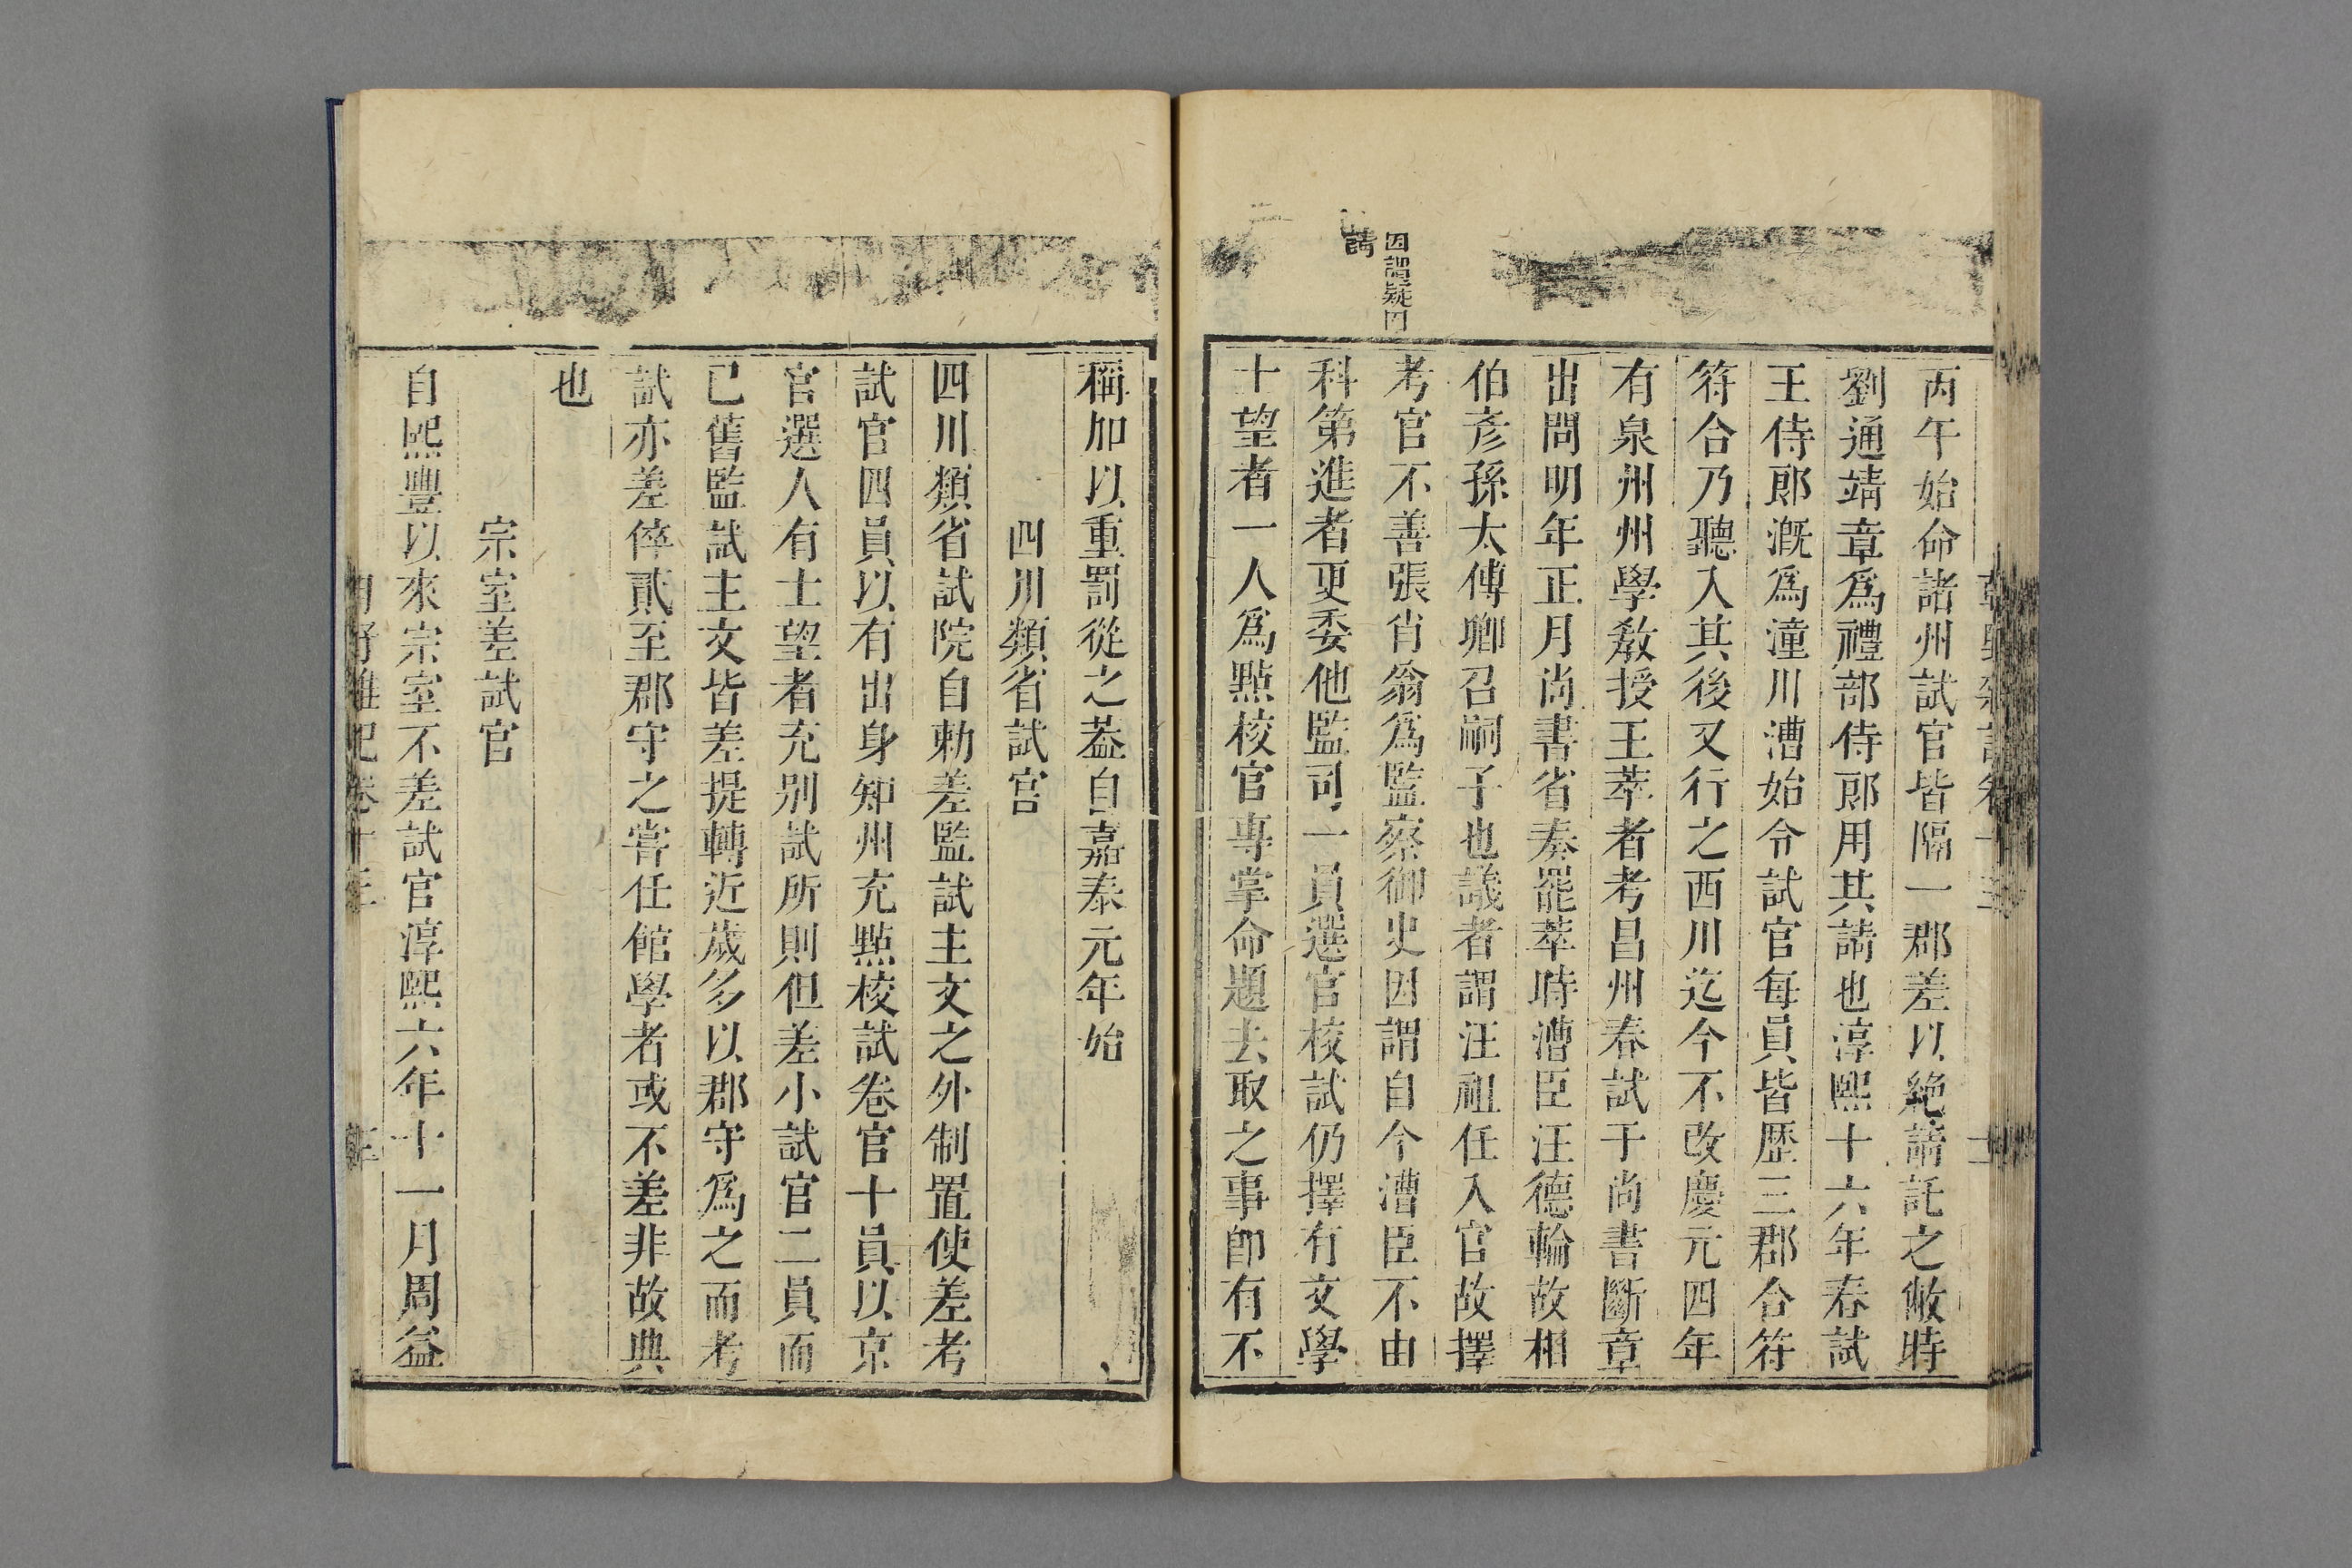 丙午始命諸州試官皆隔一郡差以絶請託之敝時
劉通靖章爲禮部侍郎用其請也淳熙十六年春試
王侍郎溉爲潼川漕始令試官每員皆歴三郡合符
符合乃聽入其後又行之西川迄今不改慶元四年
有泉州州學教授王萃者考昌州春試于尚書斷章
出問明年正月尚書省奏罷萃時漕臣汪德輪故相
伯彦孫太傅卿召嗣子也議者謂汪祖任入官故擇
考官不善張肖翁爲監察御史因謂自今漕臣不由
科第進者更委他監司一員選官校試仍擇有文學
十望者一人爲點校官專掌命題去取之事即有不
因謂疑因
請
稱加以重罰從之葢自嘉泰元年始
四川類省試官
四川類省試院自勅差監試主文之外制置使差考
試官四員以有出身知州充點校試卷官十員以京
官選人有士望者充别試所則但差小試官二員而
已舊監試主文皆差提轉近歲多以郡守爲之而考
試亦差倅貳至郡守之嘗任館學者或不差非故典
也
宗室差試官
自熙豐以來宗室不差試官淳熙六年十一月周益